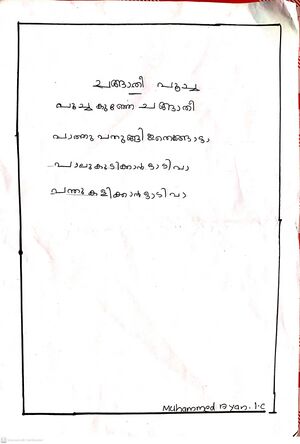 ചങ്ങാതീ പൂച്ച
പൂച്ച കുഞ്ഞേ ചങ്ങാതീ
പാത്തു പതുങ്ങി
പാലുകുടിക്കാൻ ഓടിവാ
പന്തു കളിക്കാൻ ഓടിവാ
Muhammed Rayan. 1.C